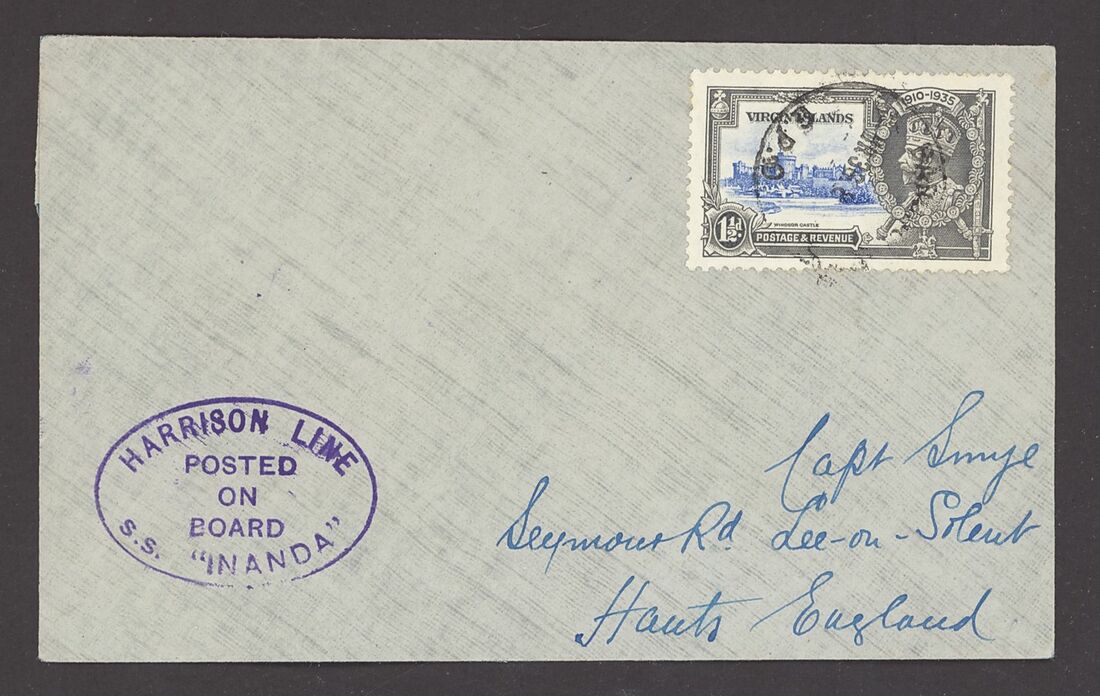 1910-1935
VIRGIN ISLANDS
G.P.O
WINDSOR CASTLE
1½d
POSTAGE & REVENUE
HARRISON LINE
POSTED
ON
BOARD
S.S. "INANDA"
Capt Smye
Seymour Rd Lee-on-Solent
Hants England